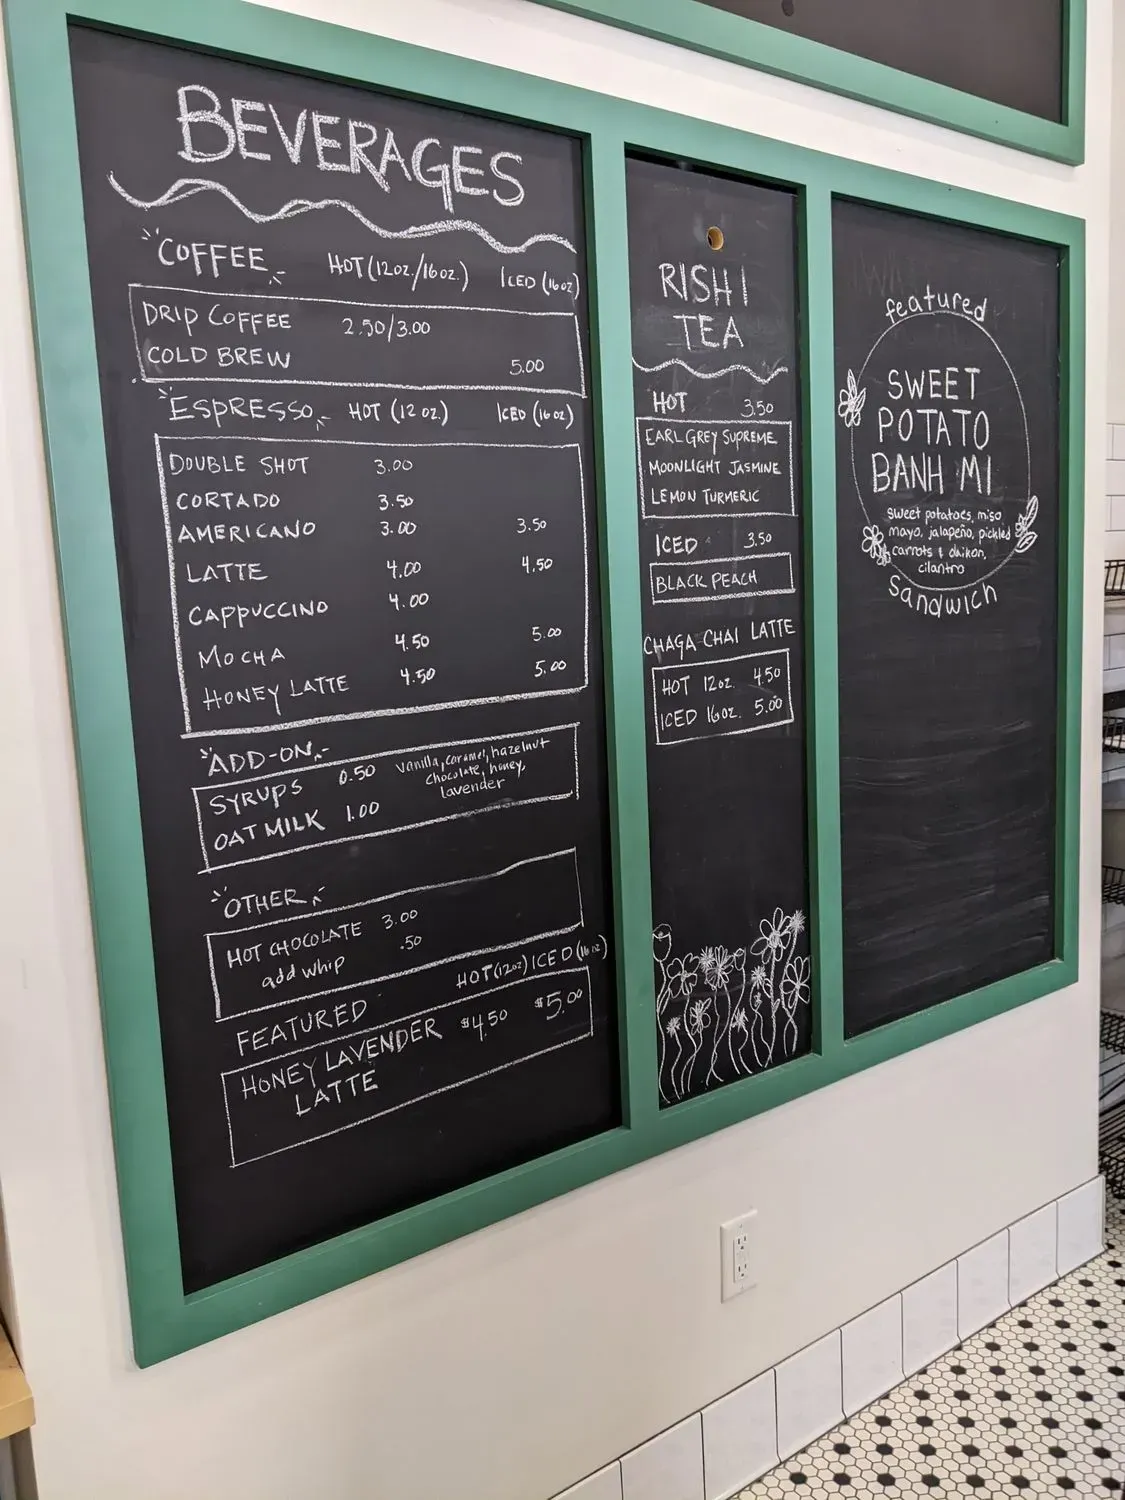 BEVERAGES
COFFEE HOT (12oz./16oz.) ICED (16oz)
DRIP COFFEE 2.50/3.00
COLD BREW 5.00
ESPRESSO HOT (12 oz.) ICED (16 oz)
DOUBLE SHOT 3.00
CORTADO 3.50
AMERICANO 3.00 3.50
LATTE 4.00 4.50
CAPPUCCINO 4.00
MOCHA 4.50 5.00
HONEY LATTE 4.50 5.00
ADD-ON
SYRUPS 0.50 vanilla, caramel, hazelnut
chocolate, honey,
lavender
OAT MILK 1.00
OTHER
HOT CHOCOLATE 3.00
add whip .50
FEATURED HOT (12oz) ICED (16oz)
HONEY LAVENDER $4.50 $5.00
LATTE
RISHI
TEA
HOT 3.50
EARL GREY SUPREME
MOONLIGHT JASMINE
LEMON TURMERIC
ICED 3.50
BLACK PEACH
CHAGA CHAI LATTE
HOT 12oz. 4.50
ICED 16oz. 5.00
featured
SWEET
POTATO
BANH MI
sweet potatoes, miso
mayo, jalapeño, pickled
carrots & daikon,
cilantro
Sandwich